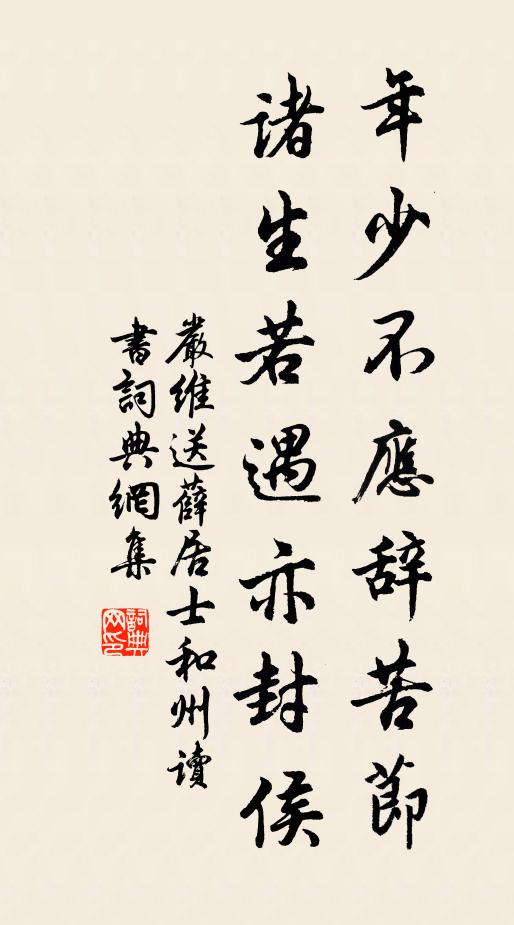 年少不應辞苦節
諸生若遇亦封侯
嚴維送薛居士和州讀
書詞典網集
詞典網印